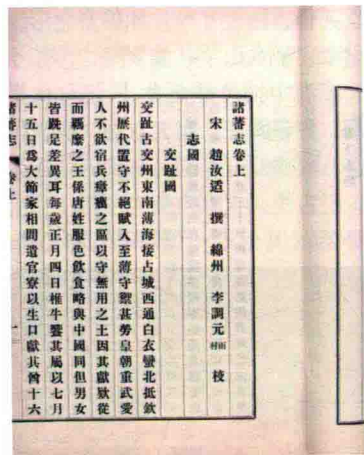 諸蕃志卷上
宋 趙汝适 撰 綿州 李調元 雨村 校
志國
交趾國
交趾古交州東南薄海接占城西通白衣蠻北抵欽
州歷代置守不絕賦入至薄守禦甚勞皇朝重武愛
人不欲宿兵瘴癘之區以守無用之土因其獻欵從
而羈縻之王係唐姓服色飲食略與中國同但男女
皆跣足差異耳每歲正月四日椎牛饗其屬以七月
十五日爲大節家相問遺官寮以生口獻其酋十六
諸蕃志 卷上 一